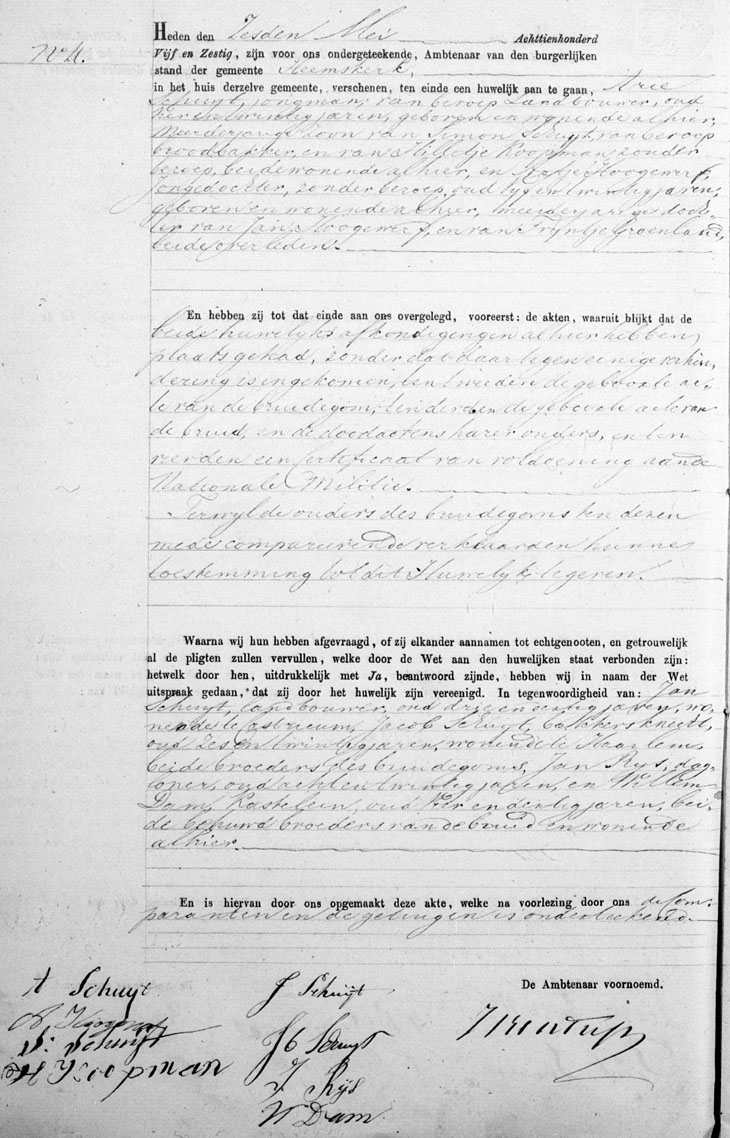 Heden den Zesden Mei Achttienhonderd
No 4. Vijf en Zestig, zijn voor ons ondergeteekende, Ambtenaar van den burgerlijken
stand der gemeente Heemskerk,
in het huis derzelve gemeente, verschenen, ten einde een huwelijk aan te gaan, Arie
Schuyt, jongman, van beroep Landbouwer, oud
vier en twintig jaren, geboren en wonende alhier,
Meerderjarige Zoon van Simon Schuyt, van beroep
broodbakker, en van Koopman, zonder
beroep, beide wonende alhier, en Hoogewerf,
jongedochter, zonder beroep, oud vijf en twintig jaren,
geboren en wonende alhier, meerderjarige doch-
ter van Jan Hoogewerf, en van Trijntje Groenland,
beide overleden.
En hebben zij tot dat einde aan ons overgelegd, vooreerst: de akten, waaruit blijkt dat de
beide huwelijks afkondigingen alhier hebben
plaats gehad, zonder dat daartegen eenige verhin-
dering is ingekomen, ten tweeden de geboorte ac-
te van de bruidegom, ten derden de geboorte acte van
de bruid, en de doodactens harer ouders, en ten
vierden een Certificaat van voldoening aan de
Nationale Militie.
Terwijl de ouders des bruidegoms ten dezen
mede compareerende verklaarden hunne
toestemming tot dit Huwelijk te geven.
Waarna wij hun hebben afgevraagd, of zij elkander aannamen tot echtgenooten, en getrouwelijk
al de pligten zullen vervullen, welke door de Wet aan den huwelijken staat verbonden zijn:
hetwelk door hen, uitdrukkelijk met Ja, beantwoord zijnde, hebben wij in naam der Wet
uitspraak gedaan, dat zij door het huwelijk zijn vereenigd. In tegenwoordigheid van: Jan
Schuyt, landbouwer, oud drie en dertig jaren, wo-
nende te Castricum, Jacob Schuyt, bakkersknegt,
oud Zes en twintig jaren, wonende te Haarlem,
beide broeders des bruidegoms, Jan Rijs, dag-
looner, oud acht en twintig jaren, en Willem
Dam, Kastelein, oud Vier en dertig jaren, bei-
de behuwd broeders van de bruid en wonende
alhier.
En is hiervan door ons opgemaakt deze akte, welke na voorlezing door ons de Com-
paranten en de getuigen is onderteekend.
De Ambtenaar voornoemd.
A Schuyt J Schuyt
S. Schuijt Jb Schuyt
Koopman J Rijs
W Dam